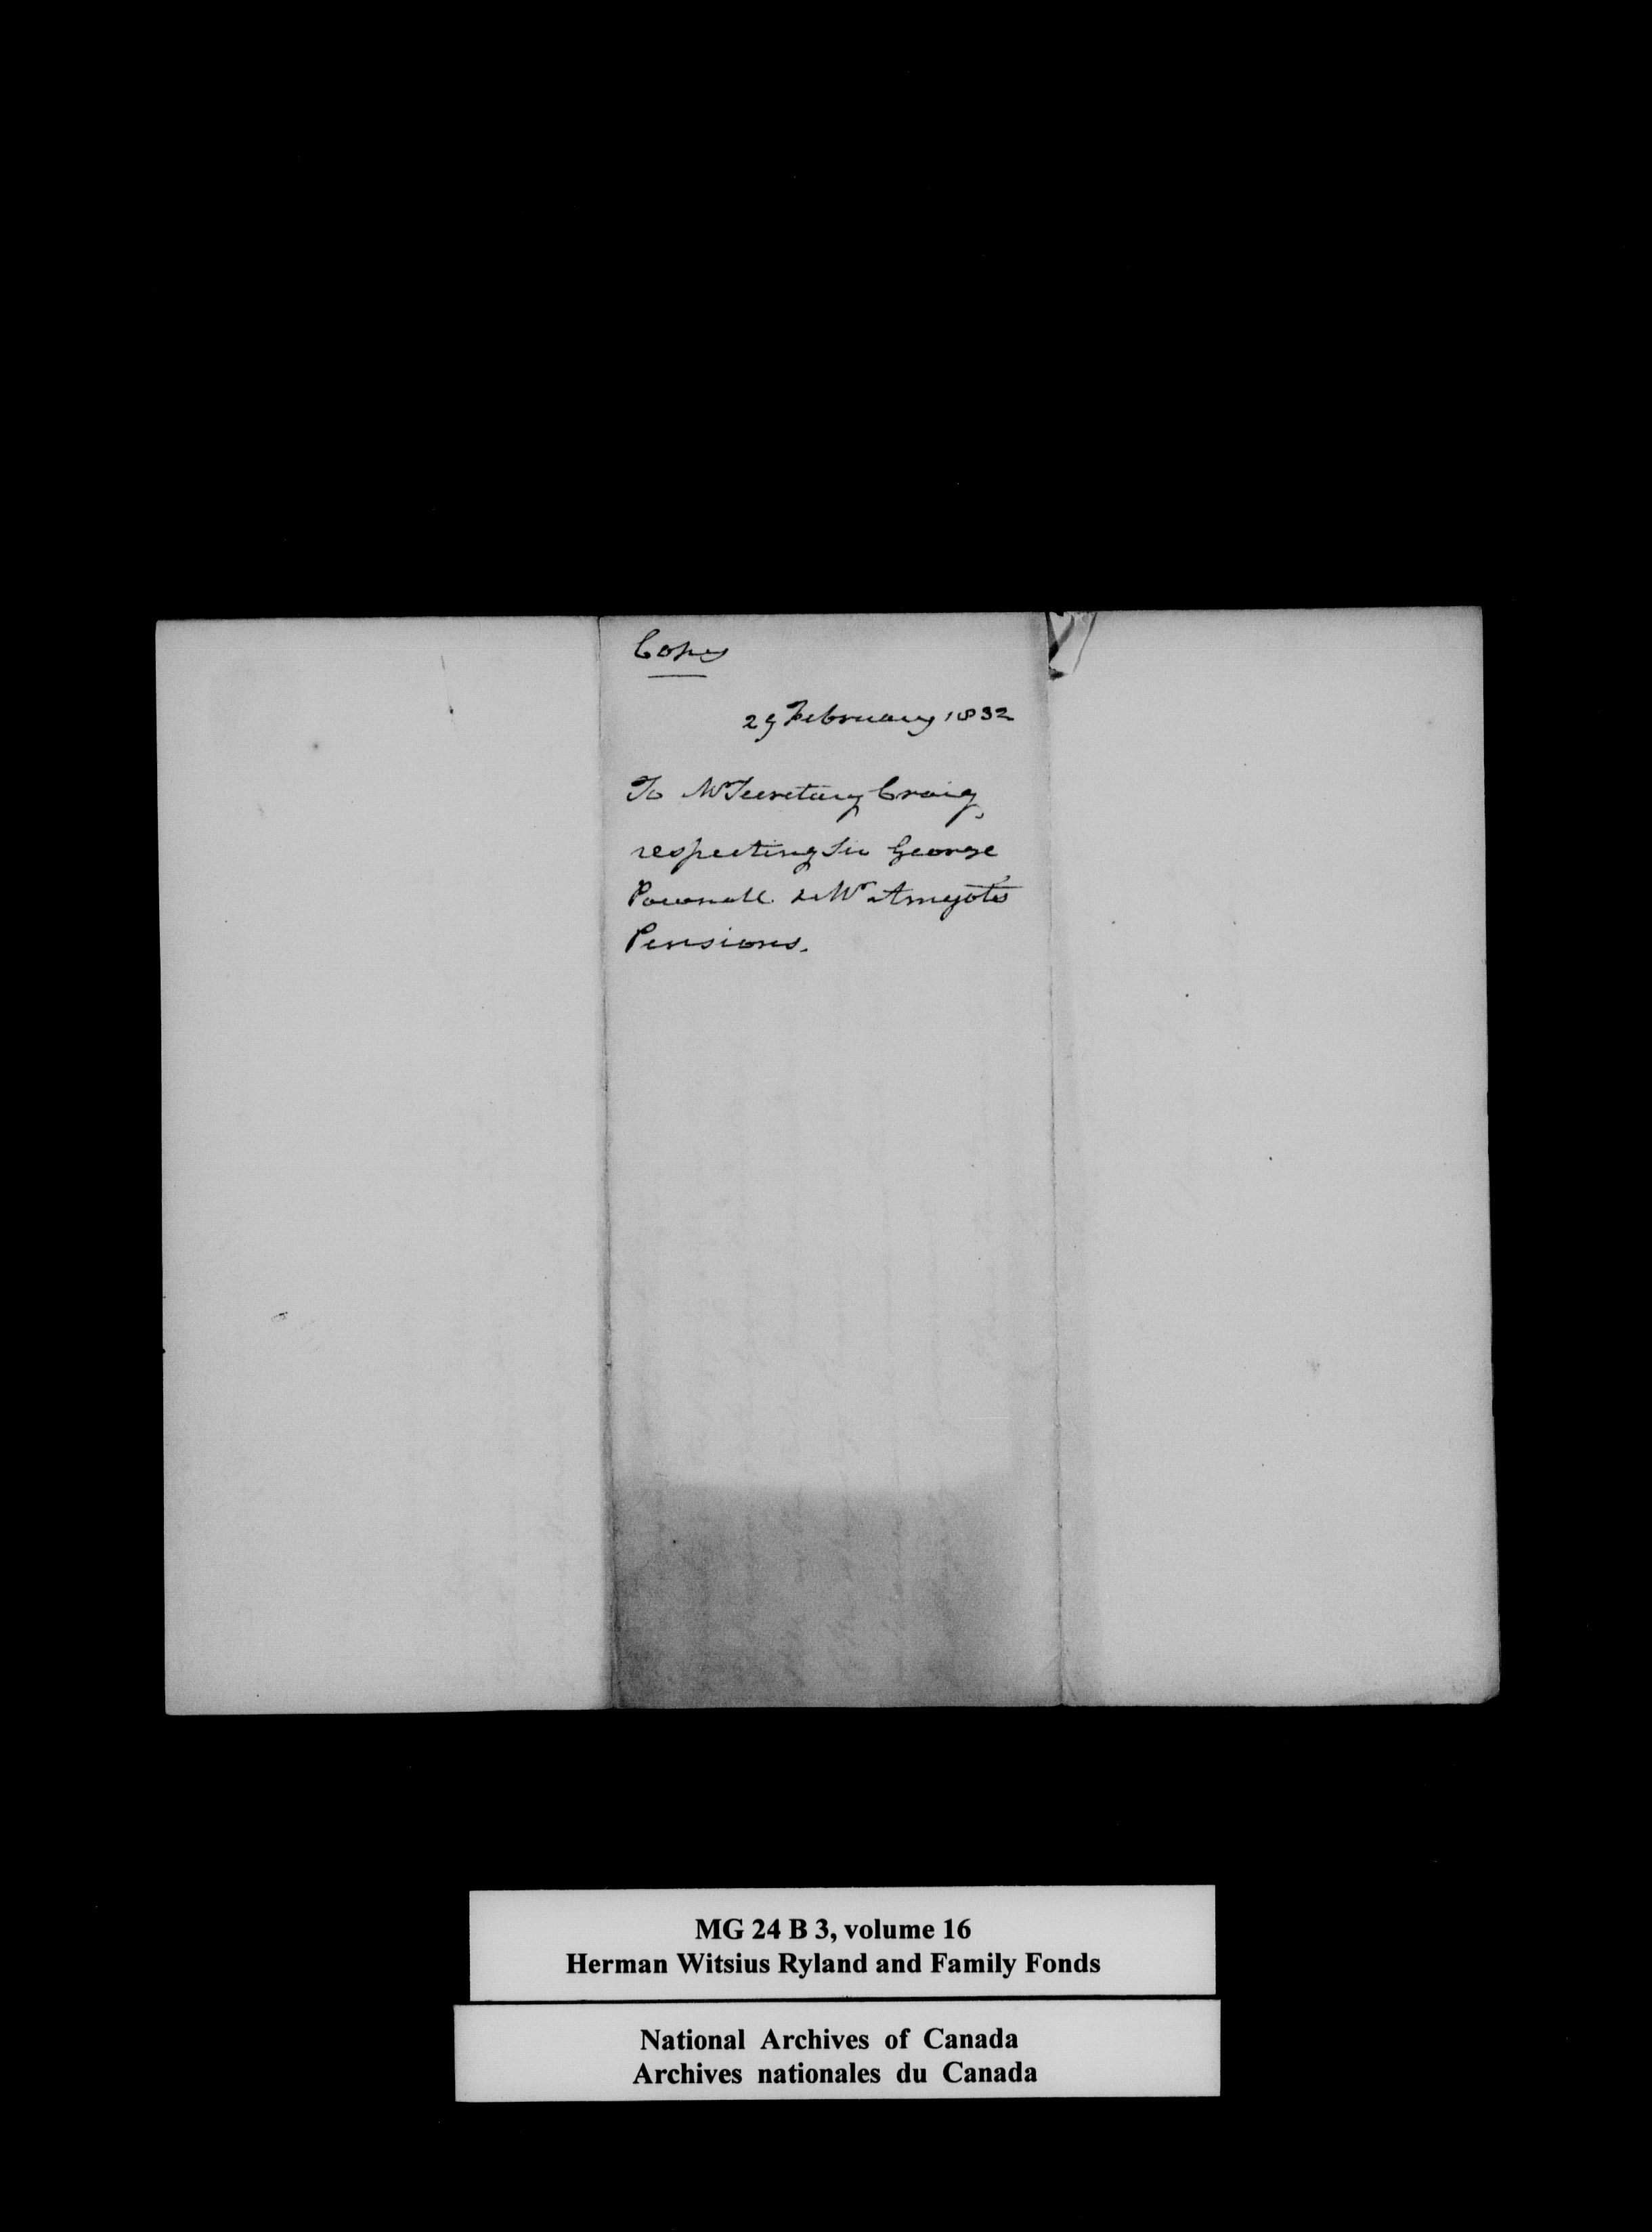 Copy
29 February 1832
To Mr Secretary Craig,
respecting Sir George
Pownall & Mr Amyot's
Pensions.
MG 24 B 3, volume 16
Herman Witsius Ryland and Family Fonds
National Archives of Canada
Archives nationales du Canada